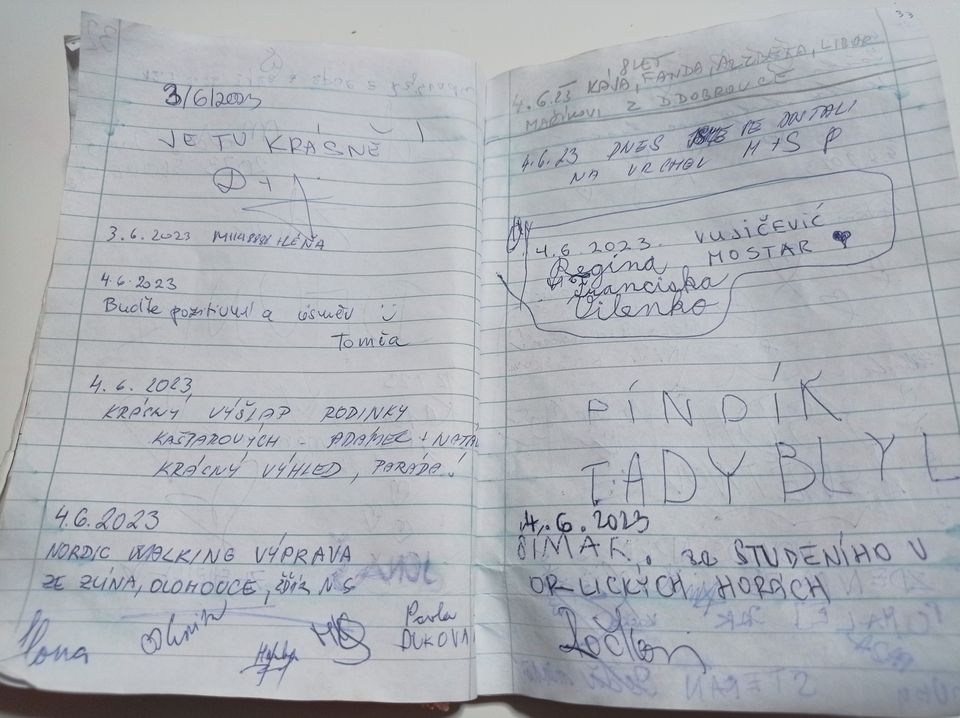 3/6/2003
JE TU KRÁSNĚ!
D +
3.6.2023 + LÉŇA
4.6.2023
Buďte pozitivní a úsměv
Tomča
4.6.2023,
KRÁSNÝ VÝŠLAP RODINKY
KAŠPAROVÝCH - ADAMEC + NATÁ
KRÁSNÝ VÝHLED, PARÁDA
4.6.2023
NORDIC WALKING VÝPRAVA
ZE ZLÍNA, OLOMOUCE, N S
Ilona
Pavla
DUKOVA
33
8 LET
4.6.23 KÁJA, FANDA, LIBOR
MAŠKOVI Z DOBROVICE
4.6.23 DNES JSME PE DOSTALI
NA VRCHOL H+S P
4.6.2023. VUJIČEVIĆ
Regina MOSTAR
Franciska
Vilenko
PÍNDÍK
TADY BLYL
4.6.2023
ŠIMAK. ze STUDENÍHO V
ORLICKÝCH HORÁCH